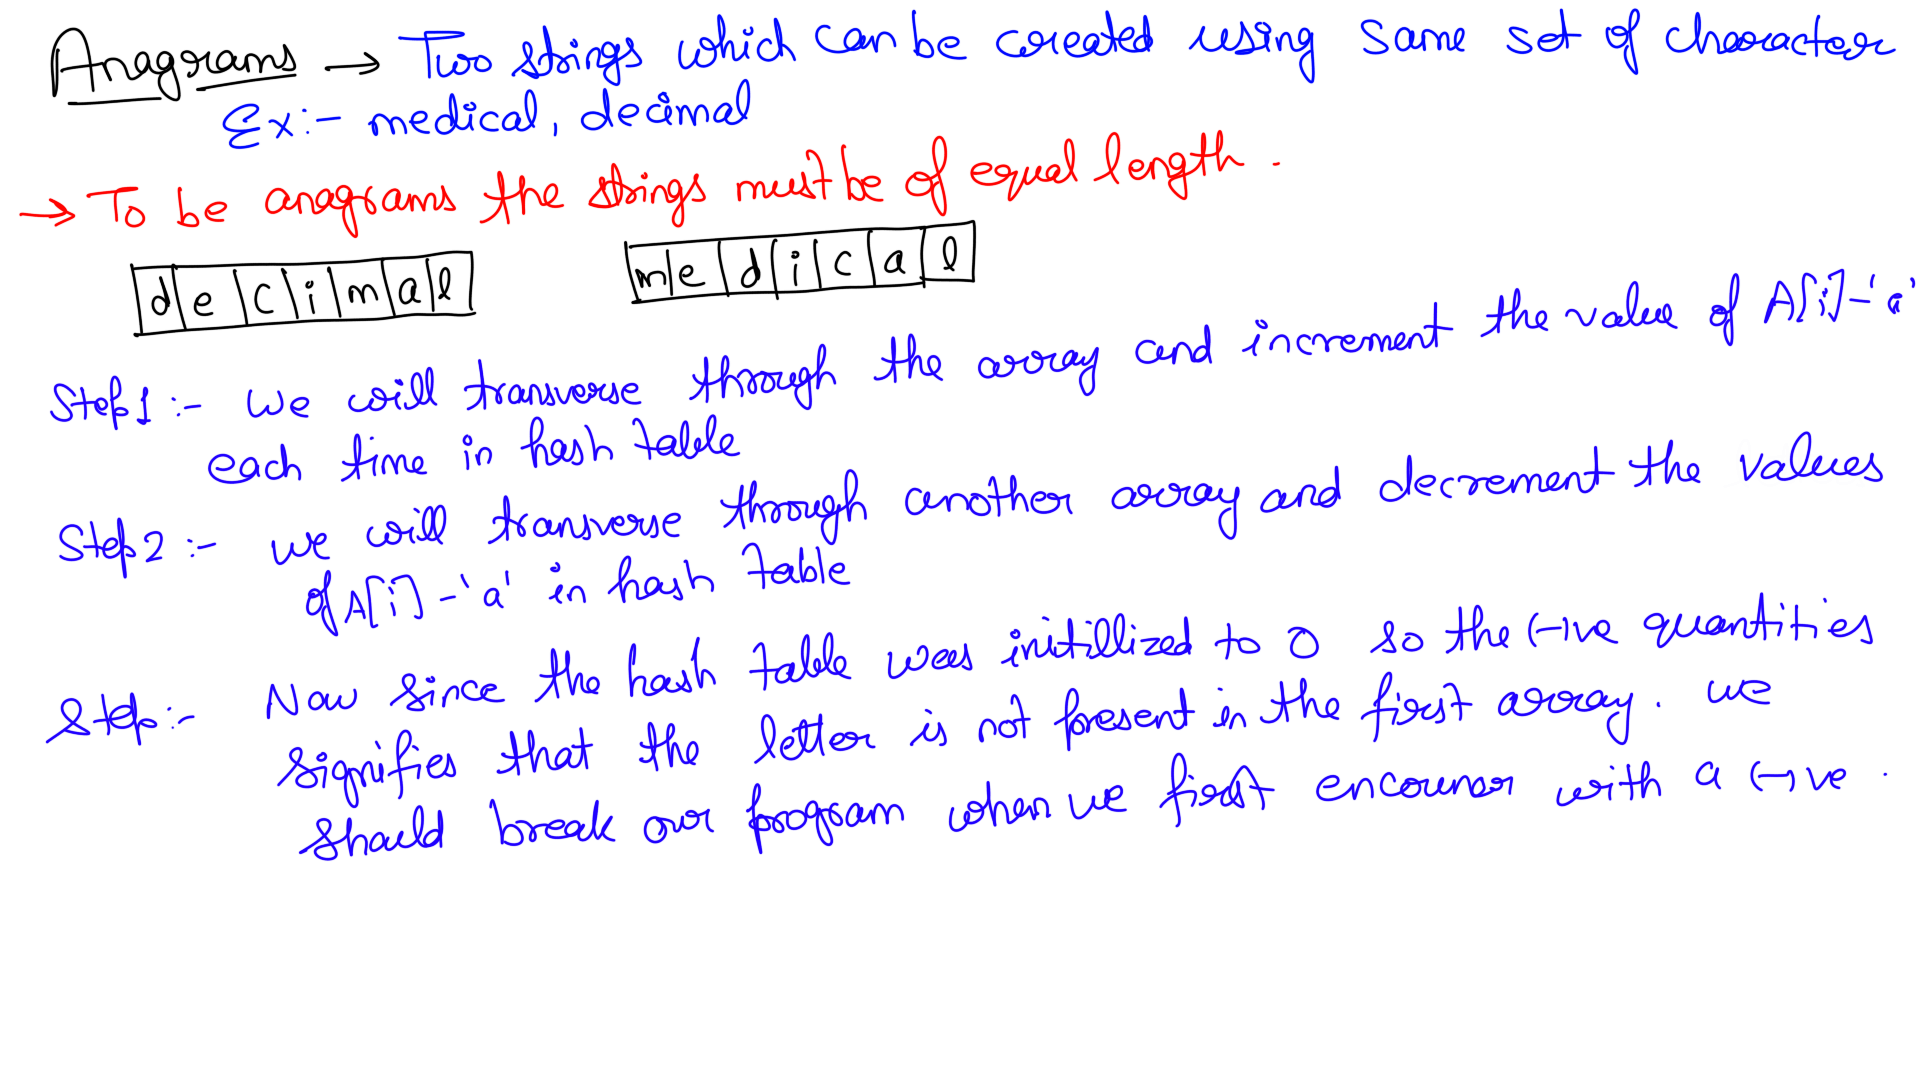 Anagrams → Two strings which can be created using same set of character
Ex:- medical, decimal
→ To be anagrams the strings must be of equal length.
d e c i m a l
m e d i c a l
Step1:- we will transverse through the array and increment the value of A[i]-'a'
each time in hash table
Step2:- we will transverse through another array and decrement the values
of A[i]-'a' in hash table
Step:- Now since the hash table was initillized to 0 so the (-)ve quantities
signifies that the letter is not present in the first array. we
should break our program when we first encouner with a (-)ve.